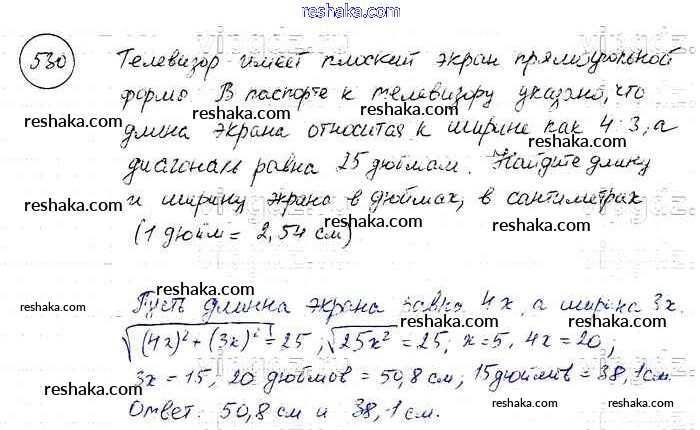 reshaka.com
530 Телевизор имеет плоский экран прямоугольной
reshaka.com
формы. В паспорте к телевизору указано, что
reshaka.com reshaka.com reshaka.com
длина экрана относится к ширине как 4:3, а
диагональ равна 25 дюймам. Найдите длину
reshaka.com reshaka.com reshaka.com
и ширину экрана в дюймах, в сантиметрах
(1 дюйм = 2,54 см)
reshaka.com reshaka.com
Пусть длинна экрана равна 4x, а ширина 3x.
reshaka.com reshaka.com reshaka.com
√(4x)²+(3x)² = 25; √25x² = 25; x=5, 4x=20;
3x=15, 20 дюймов = 50,8 см; 15 дюймов = 38,1 см.
reshaka.com reshaka.com reshaka.com
Ответ: 50,8 см и 38,1 см.
reshaka.com